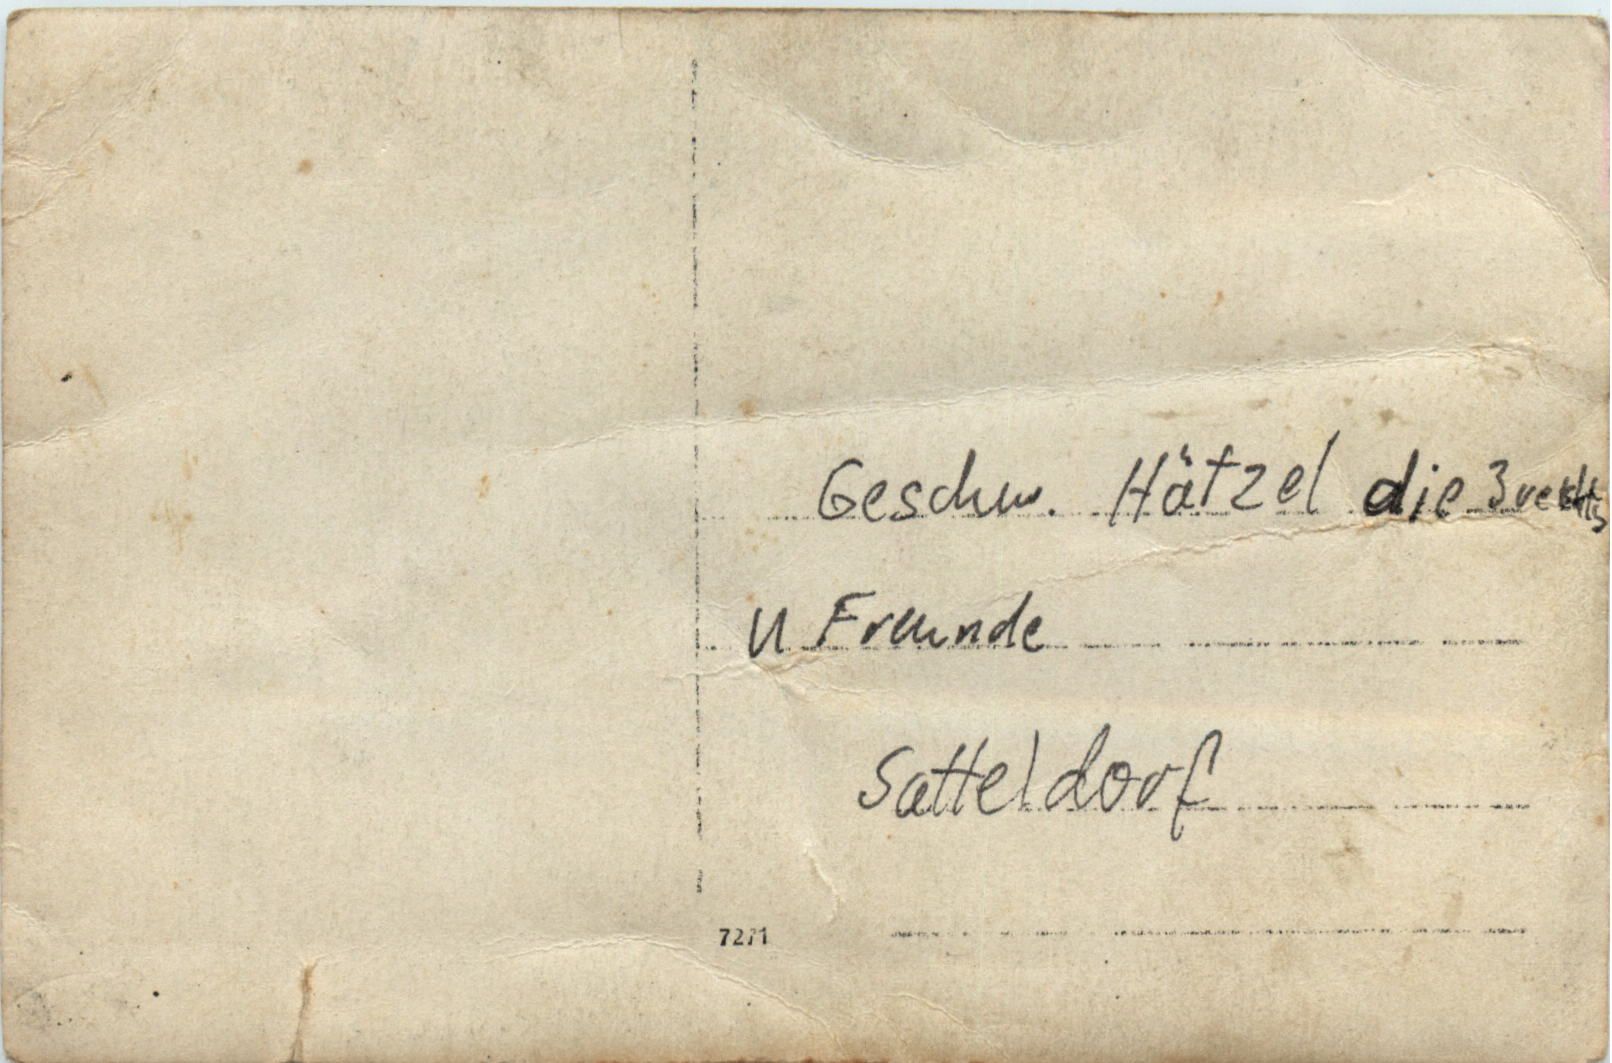 Geschw. Hätzel die 3 rechts
u Freunde
Satteldorf
7271